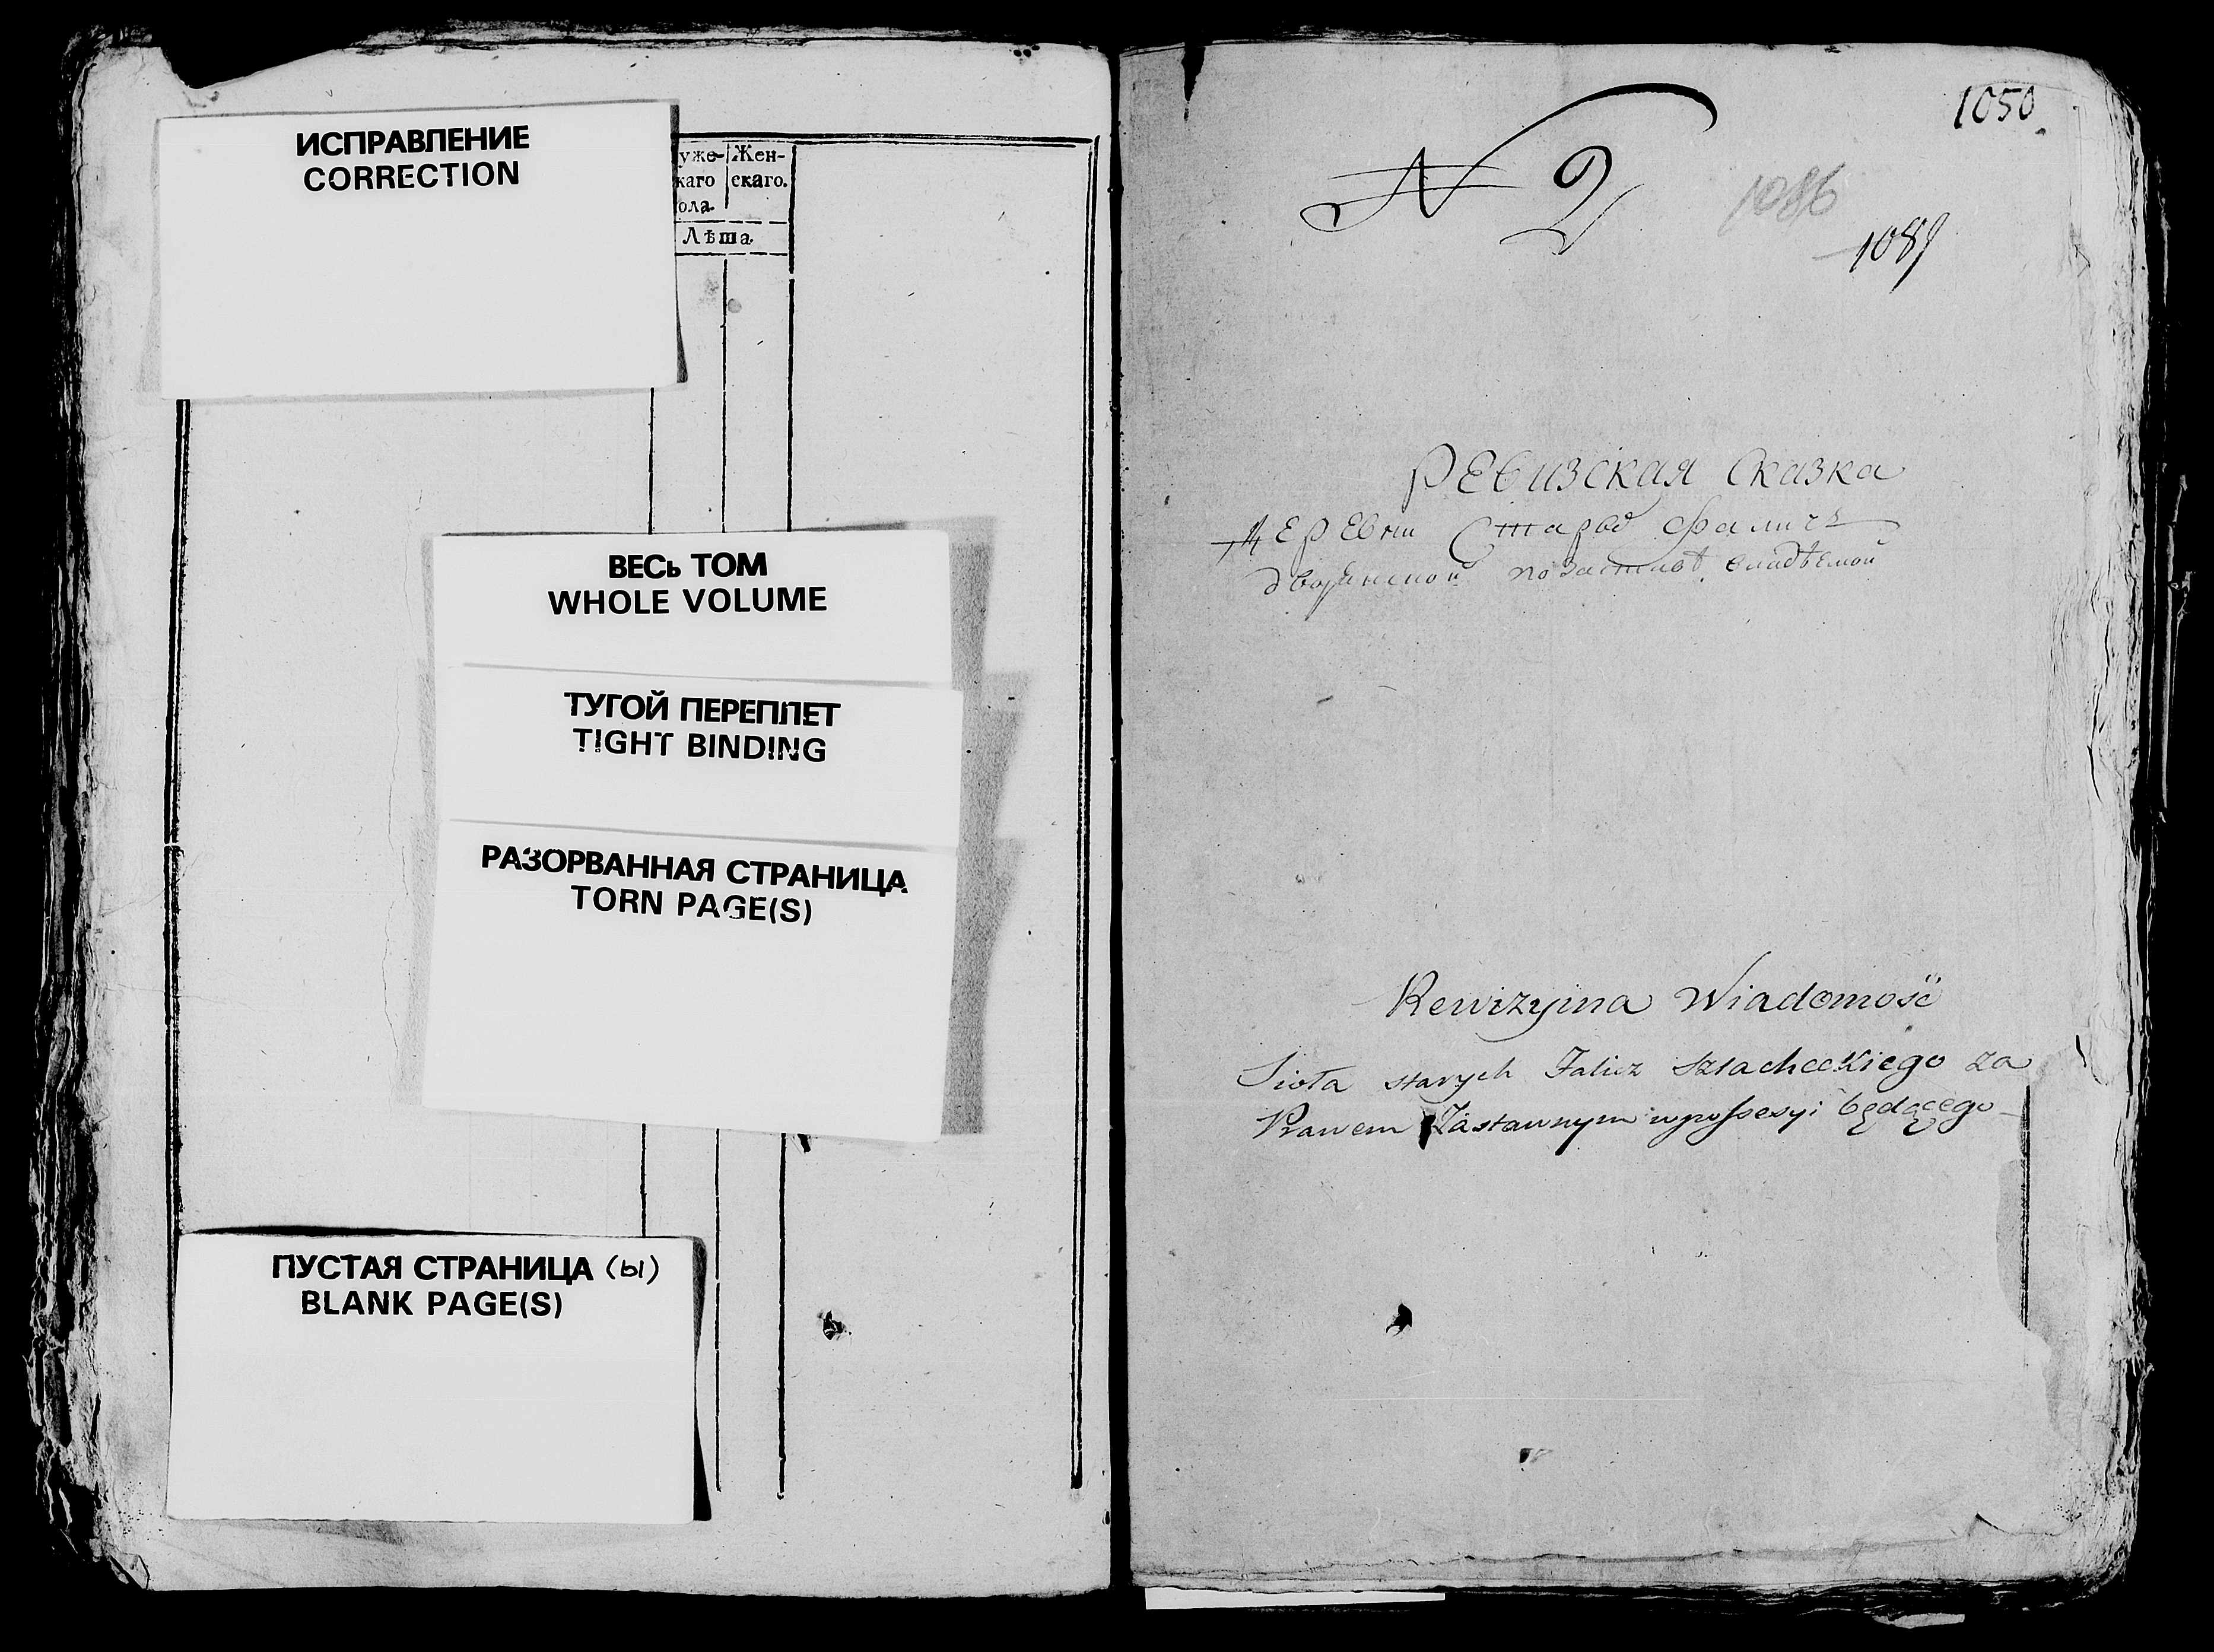 ИСПРАВЛЕНИЕ
CORRECTION
уже- Жен-
каго скаго.
ола.
Лѣта.
ВЕСЬ ТОМ
WHOLE VOLUME
ТУГОЙ ПЕРЕПЛЕТ
TIGHT BINDING
РАЗОРВАННАЯ СТРАНИЦА
TORN PAGE(S)
ПУСТАЯ СТРАНИЦА (Ы)
BLANK PAGE(S)
1050
N 2
1086
1089
Ревизская Сказка
Деревни Старыхъ Фаличъ
дворянской по заставѣ владѣемой
Rewizyina Wiadomość
Sioła starych Falicz szlacheckiego za
Prawem Zastawnym w possesyi będącego